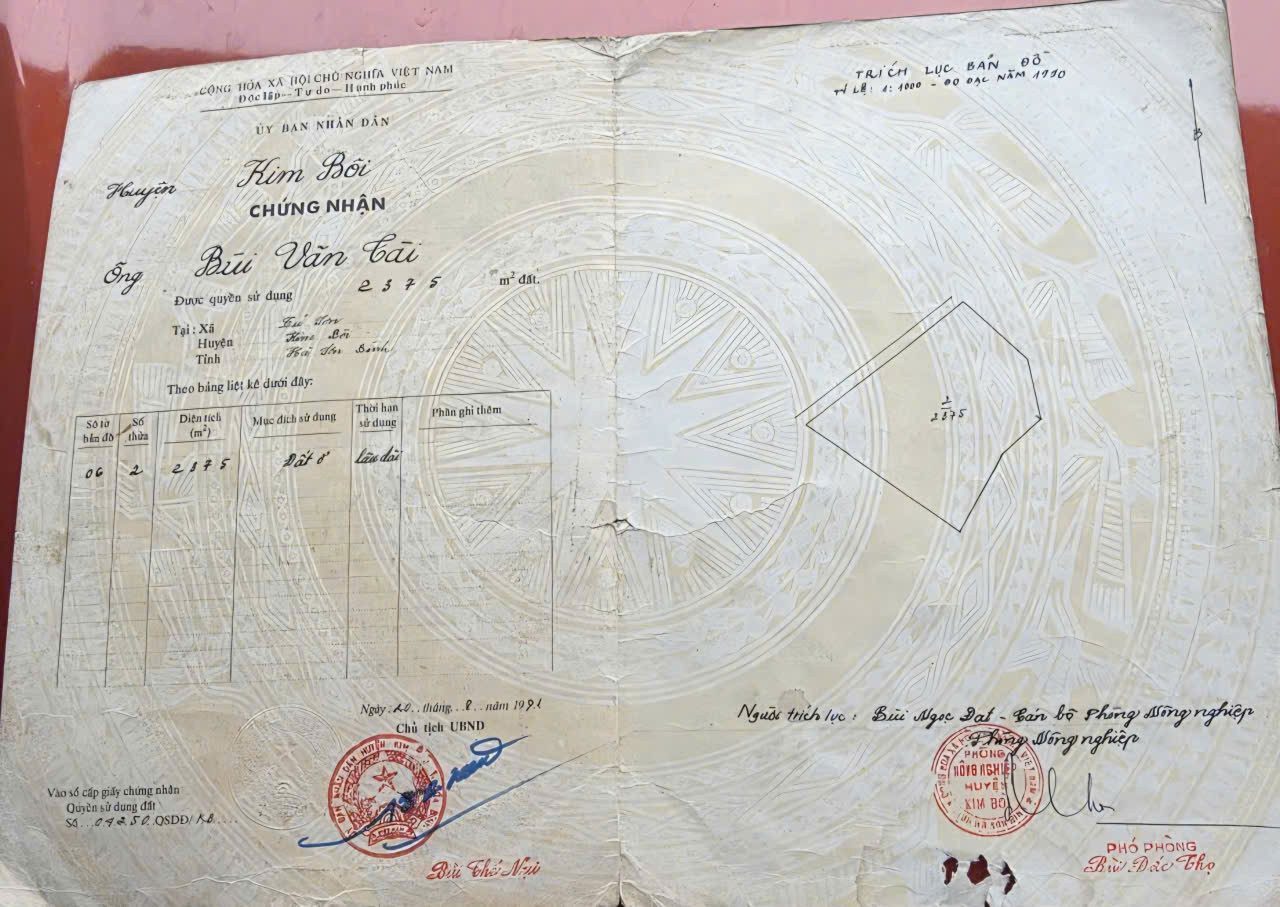 CỘNG HÒA XÃ HỘI CHỦ NGHĨA VIỆT NAM
Độc lập — Tự do — Hạnh phúc
ỦY BAN NHÂN DÂN
Huyện Kim Bôi
CHỨNG NHẬN
Ông Bùi Văn Tài
Được quyền sử dụng 2375 m² đất.
Tại : Xã Tú Sơn
Huyện Kim Bôi
Tỉnh Hà Sơn Bình
Theo bảng liệt kê dưới đây:
Số tờ bản đồ Số thửa Diện tích (m²) Mục đích sử dụng Thời hạn sử dụng Phần ghi thêm
06 2 2375 Đất ở lâu dài
Ngày 20 tháng 8 năm 1991
Chủ tịch UBND
Vào sổ cấp giấy chứng nhận
Quyền sử dụng đất
Số 04250 QSDĐ/KB
Bùi Thế Nụi
TRÍCH LỤC BẢN ĐỒ
TỶ LỆ: 1:1000 - ĐO ĐẠC NĂM 1990
B
2
2375
Người trích lục : Bùi Ngọc Đạt - Cán bộ Phòng Nông nghiệp
Phòng Nông nghiệp
PHÒNG
NÔNG NGHIỆP
HUYỆN
KIM BÔI
PHÓ PHÒNG
Bùi Đắc Thọ